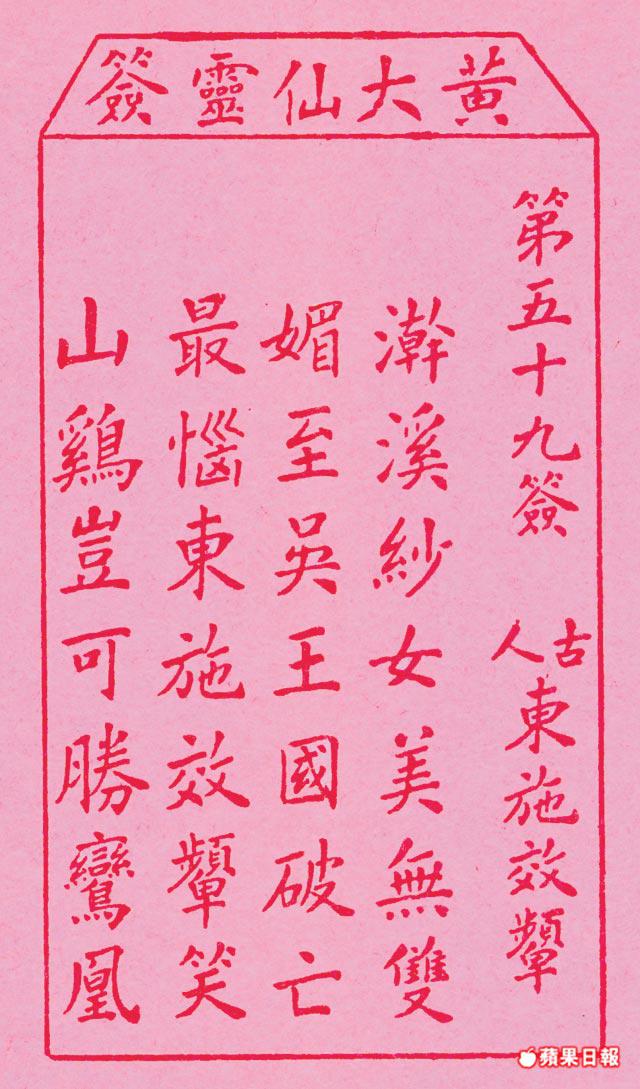 黃大仙靈簽
第五十九簽 古人 東施效顰
澣溪紗女美無雙
媚至吳王國破亡
最惱東施效顰笑
山鷄豈可勝鸞凰
蘋果日報